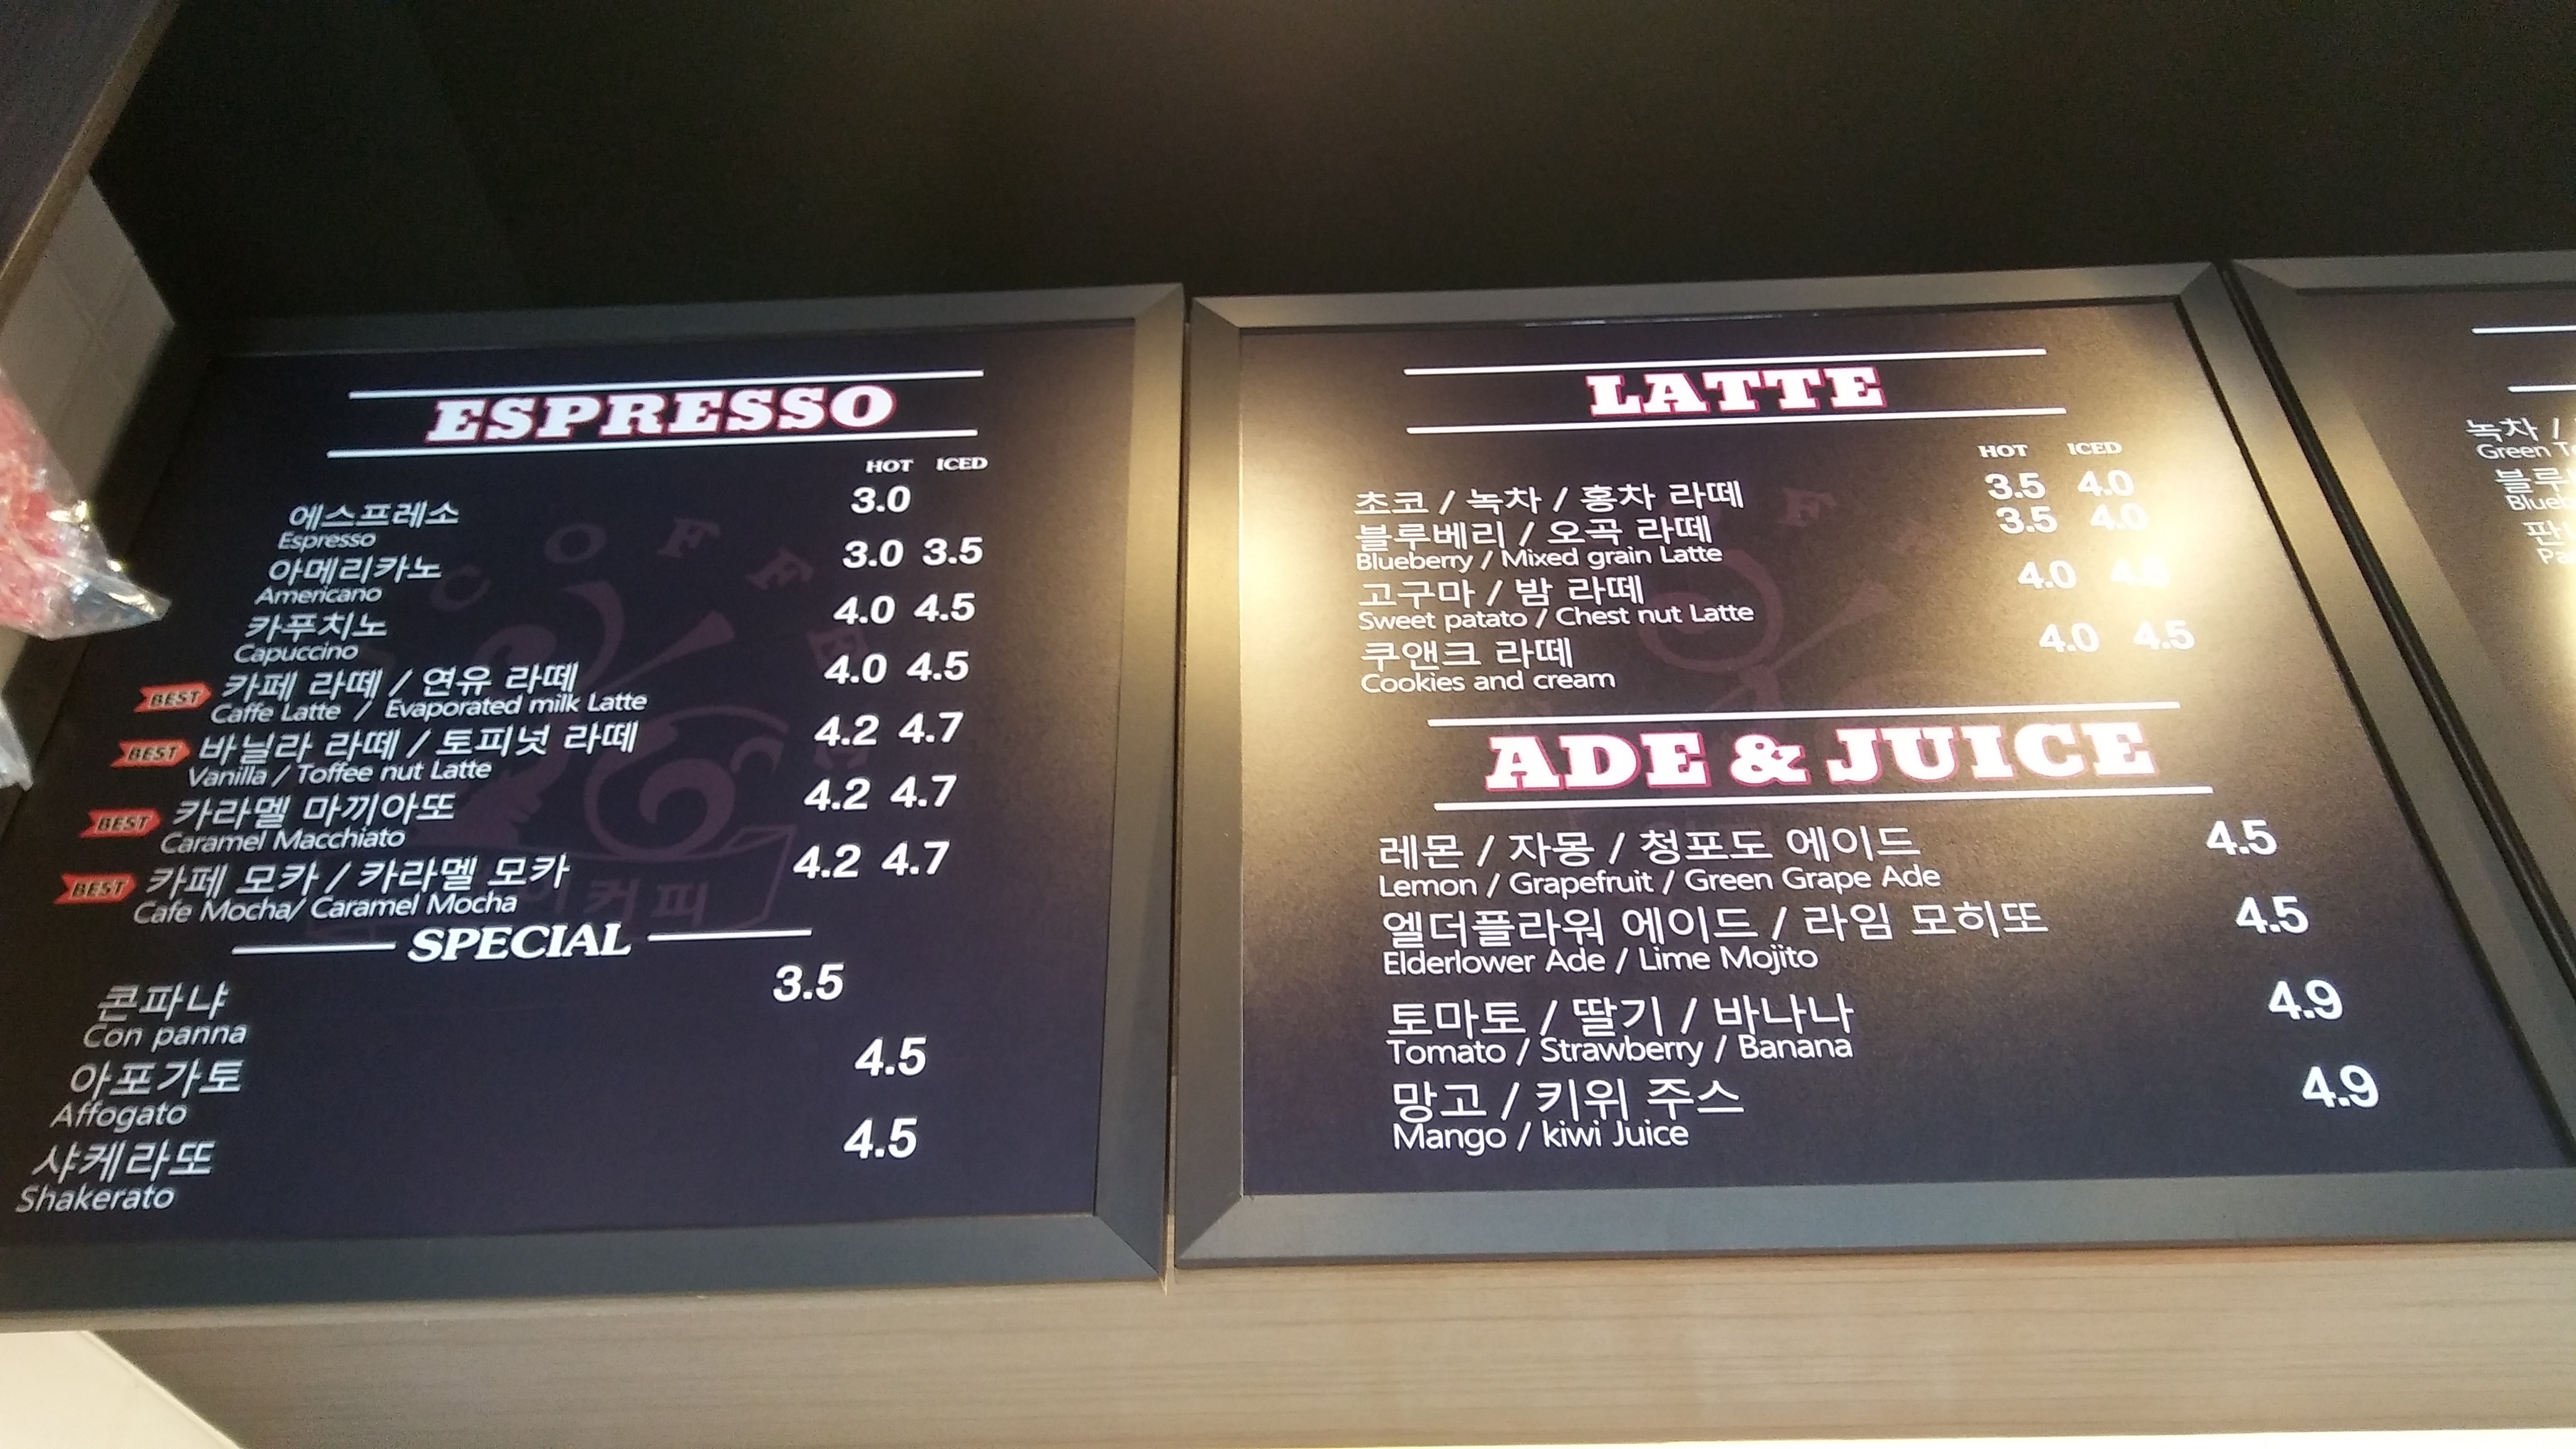 ESPRESSO
HOT ICED
에스프레소 3.0
Espresso
아메리카노 3.0 3.5
Americano
카푸치노 4.0 4.5
Capuccino
BEST 카페 라떼 / 연유 라떼 4.0 4.5
Caffe Latte / Evaporated milk Latte
BEST 바닐라 라떼 / 토피넛 라떼 4.2 4.7
Vanilla / Toffee nut Latte
BEST 카라멜 마끼아또 4.2 4.7
Caramel Macchiato
BEST 카페 모카 / 카라멜 모카 4.2 4.7
Cafe Mocha/ Caramel Mocha
COFFEE
커피
SPECIAL
콘파냐 3.5
Con panna
아포가토 4.5
Affogato
샤케라또 4.5
Shakerato
LATTE
HOT ICED
초코 / 녹차 / 홍차 라떼 3.5 4.0
블루베리 / 오곡 라떼 3.5 4.0
Blueberry / Mixed grain Latte
고구마 / 밤 라떼 4.0
Sweet patato / Chest nut Latte
쿠앤크 라떼 4.0 4.5
Cookies and cream
ADE & JUICE
레몬 / 자몽 / 청포도 에이드 4.5
Lemon / Grapefruit / Green Grape Ade
엘더플라워 에이드 / 라임 모히또 4.5
Elderlower Ade / Lime Mojito
토마토 / 딸기 / 바나나 4.9
Tomato / Strawberry / Banana
망고 / 키위 주스 4.9
Mango / kiwi Juice
녹차 /
Green